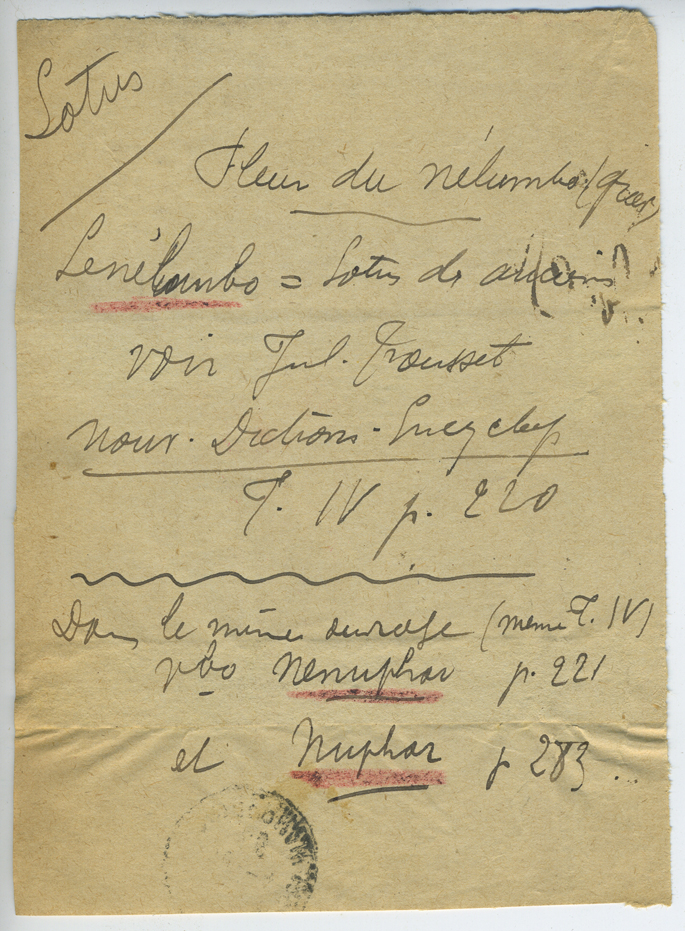 Lotus
Fleur du nélumbo (grec)
Le nélombo = Lotus de anciens
voir Jul. Trousset
Nouv. Dictionn. Encyclop
T. IV p. 220
Dans le même ouvrage (même T. IV)
vbo Nenuphar p. 221
et Nuphar p 283 ...